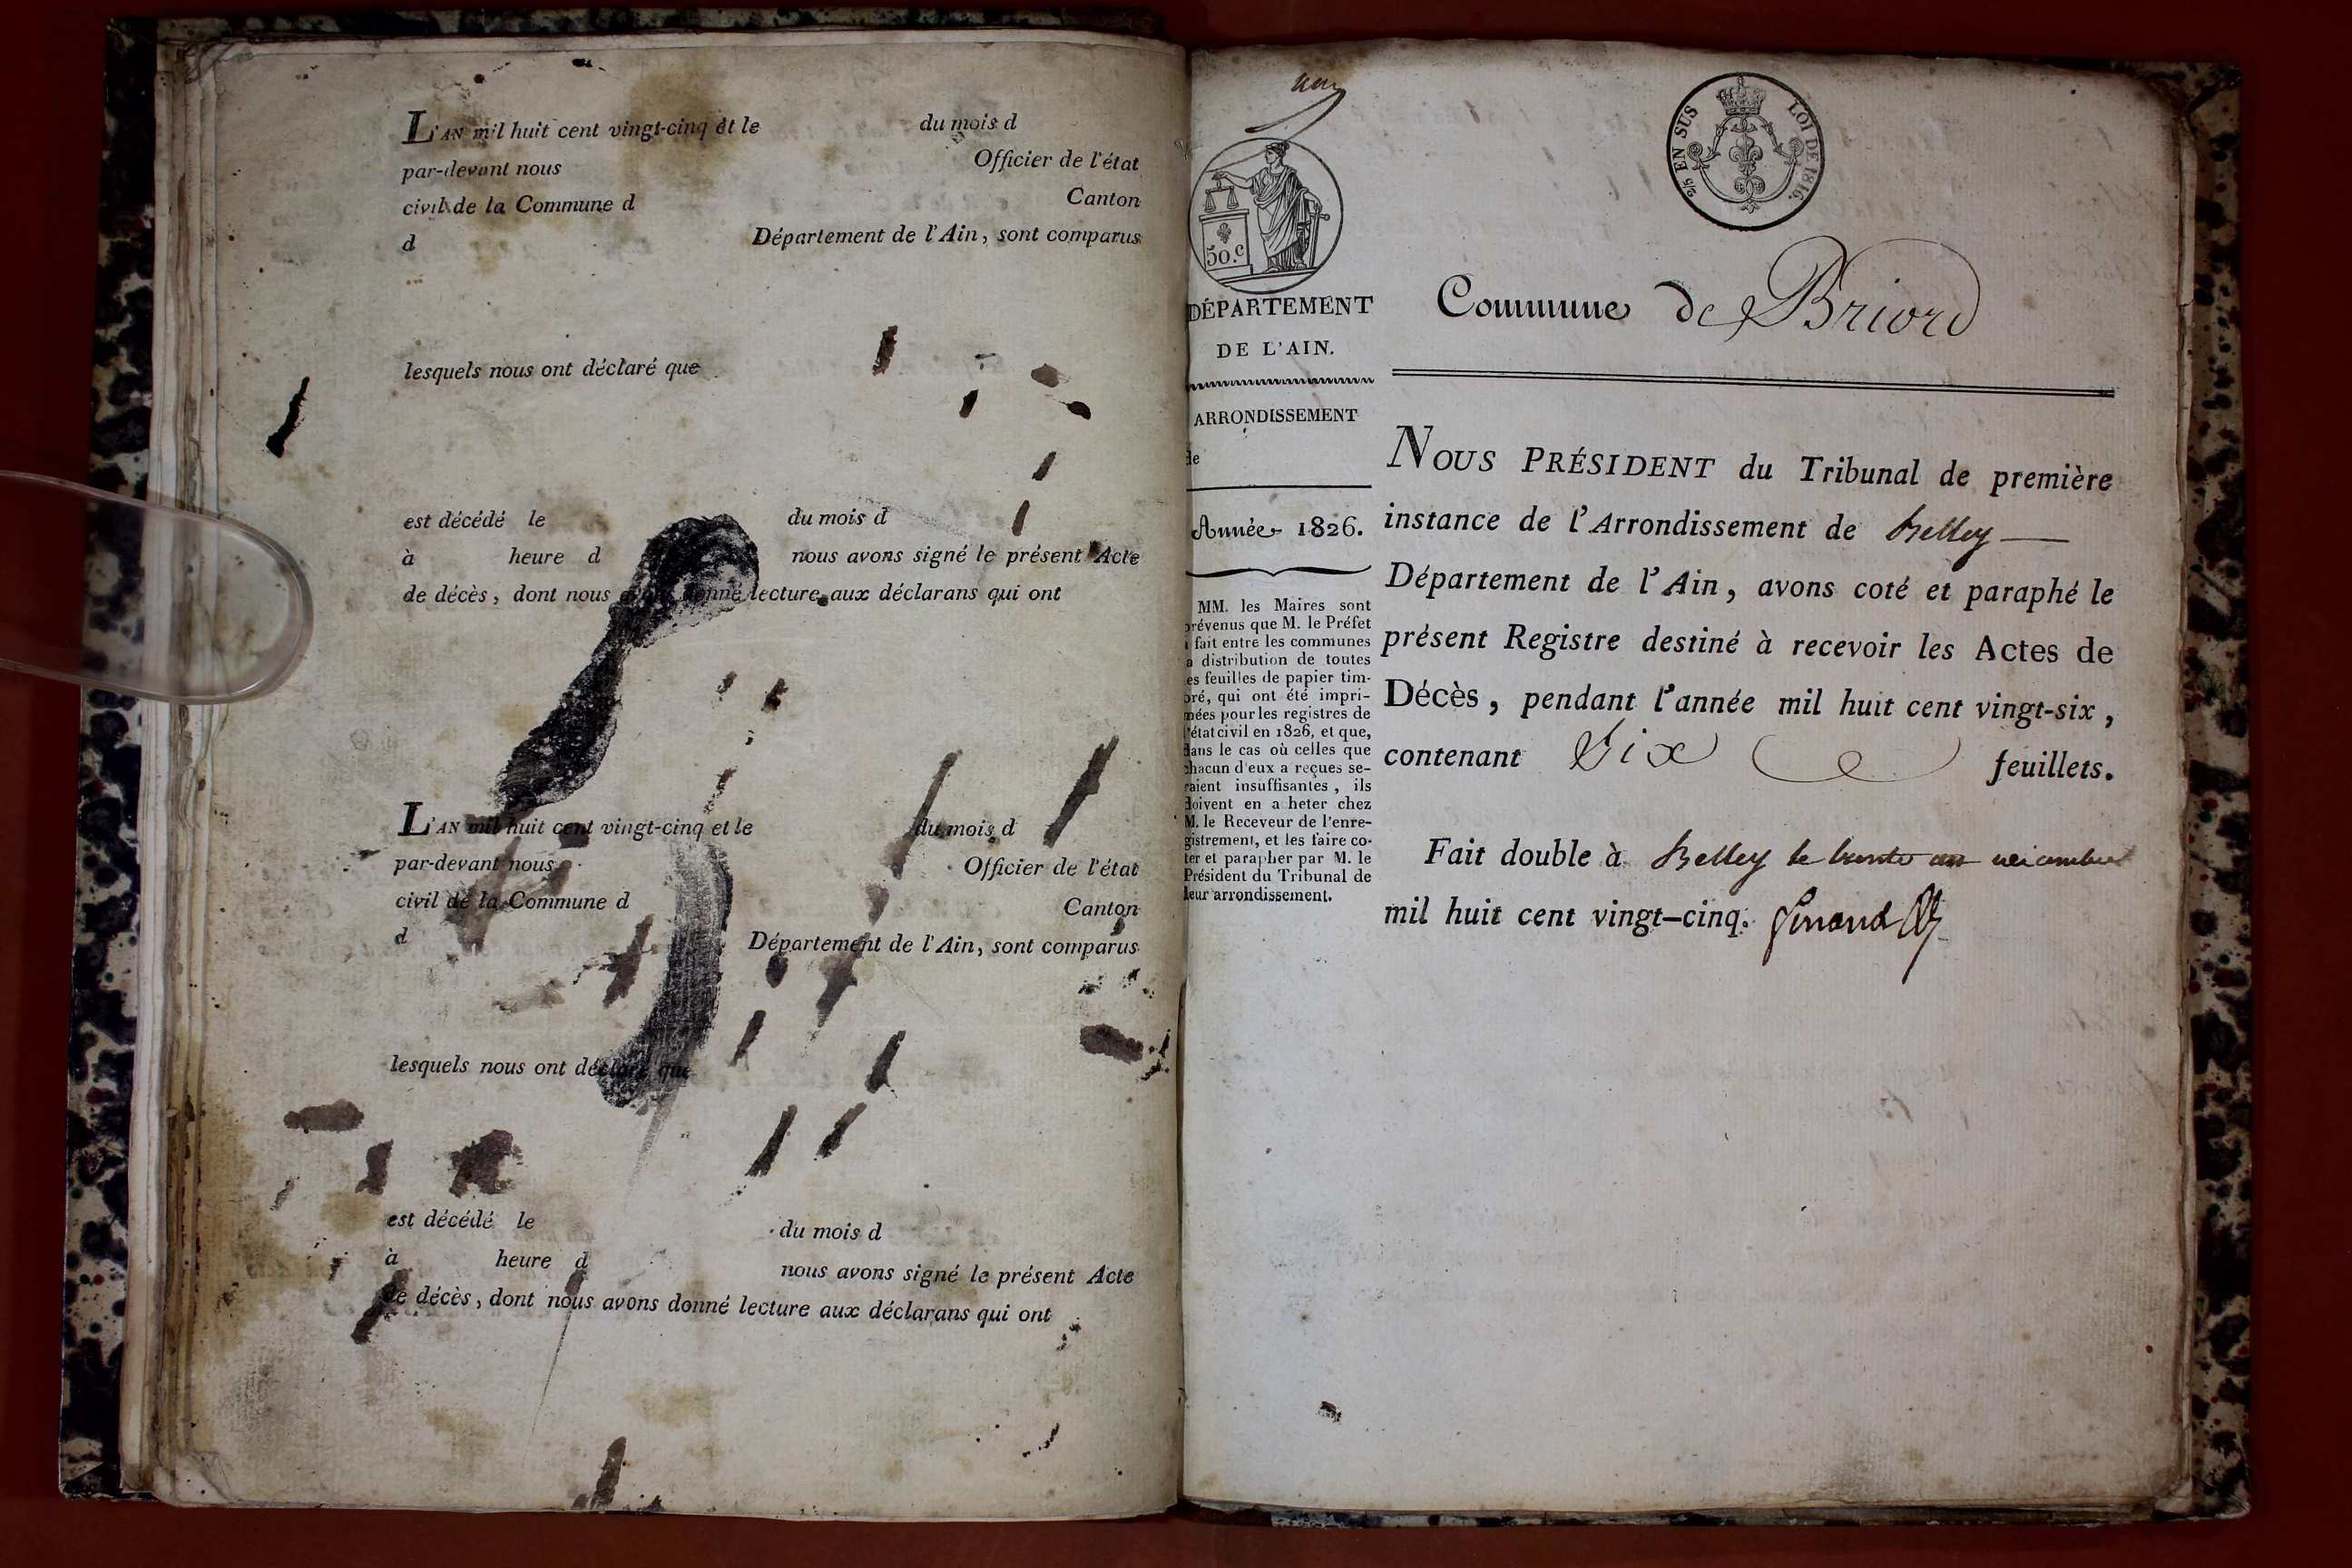 L'AN mil huit cent vingt-cinq et le du mois d
par-devant nous Officier de l'état
civil de la Commune d Canton
d Département de l'Ain, sont comparus
lesquels nous ont déclaré que
est décédé le du mois d
à heure d nous avons signé le présent Acte
de décès, dont nous avons donné lecture aux déclarans qui ont
L'AN mil huit cent vingt-cinq et le du mois d
par-devant nous Officier de l'état
civil de la Commune d Canton
d Département de l'Ain, sont comparus
lesquels nous ont déclaré que
est décédé le du mois d
à heure d nous avons signé le présent Acte
de décès, dont nous avons donné lecture aux déclarans qui ont
50.c
DÉPARTEMENT
DE L'AIN.
ARRONDISSEMENT
de
Année 1826.
MM. les Maires sont
prévenus que M. le Préfet
a fait entre les communes
la distribution de toutes
les feuilles de papier tim-
bré, qui ont été impri-
mées pour les registres de
l'état civil en 1826, et que,
dans le cas où celles que
chacun d'eux a reçues se-
raient insuffisantes, ils
doivent en a heter chez
M. le Receveur de l'enre-
gistrement, et les faire co-
ter et parapher par M. le
Président du Tribunal de
leur arrondissement.
2/5 EN SUS LOI DE 1816.
Commune de Briord
NOUS PRÉSIDENT du Tribunal de première
instance de l'Arrondissement de Belley
Département de l'Ain, avons coté et paraphé le
présent Registre destiné à recevoir les Actes de
Décès, pendant l'année mil huit cent vingt-six,
contenant Six feuillets.
Fait double à Belley le trente un
mil huit cent vingt-cinq.